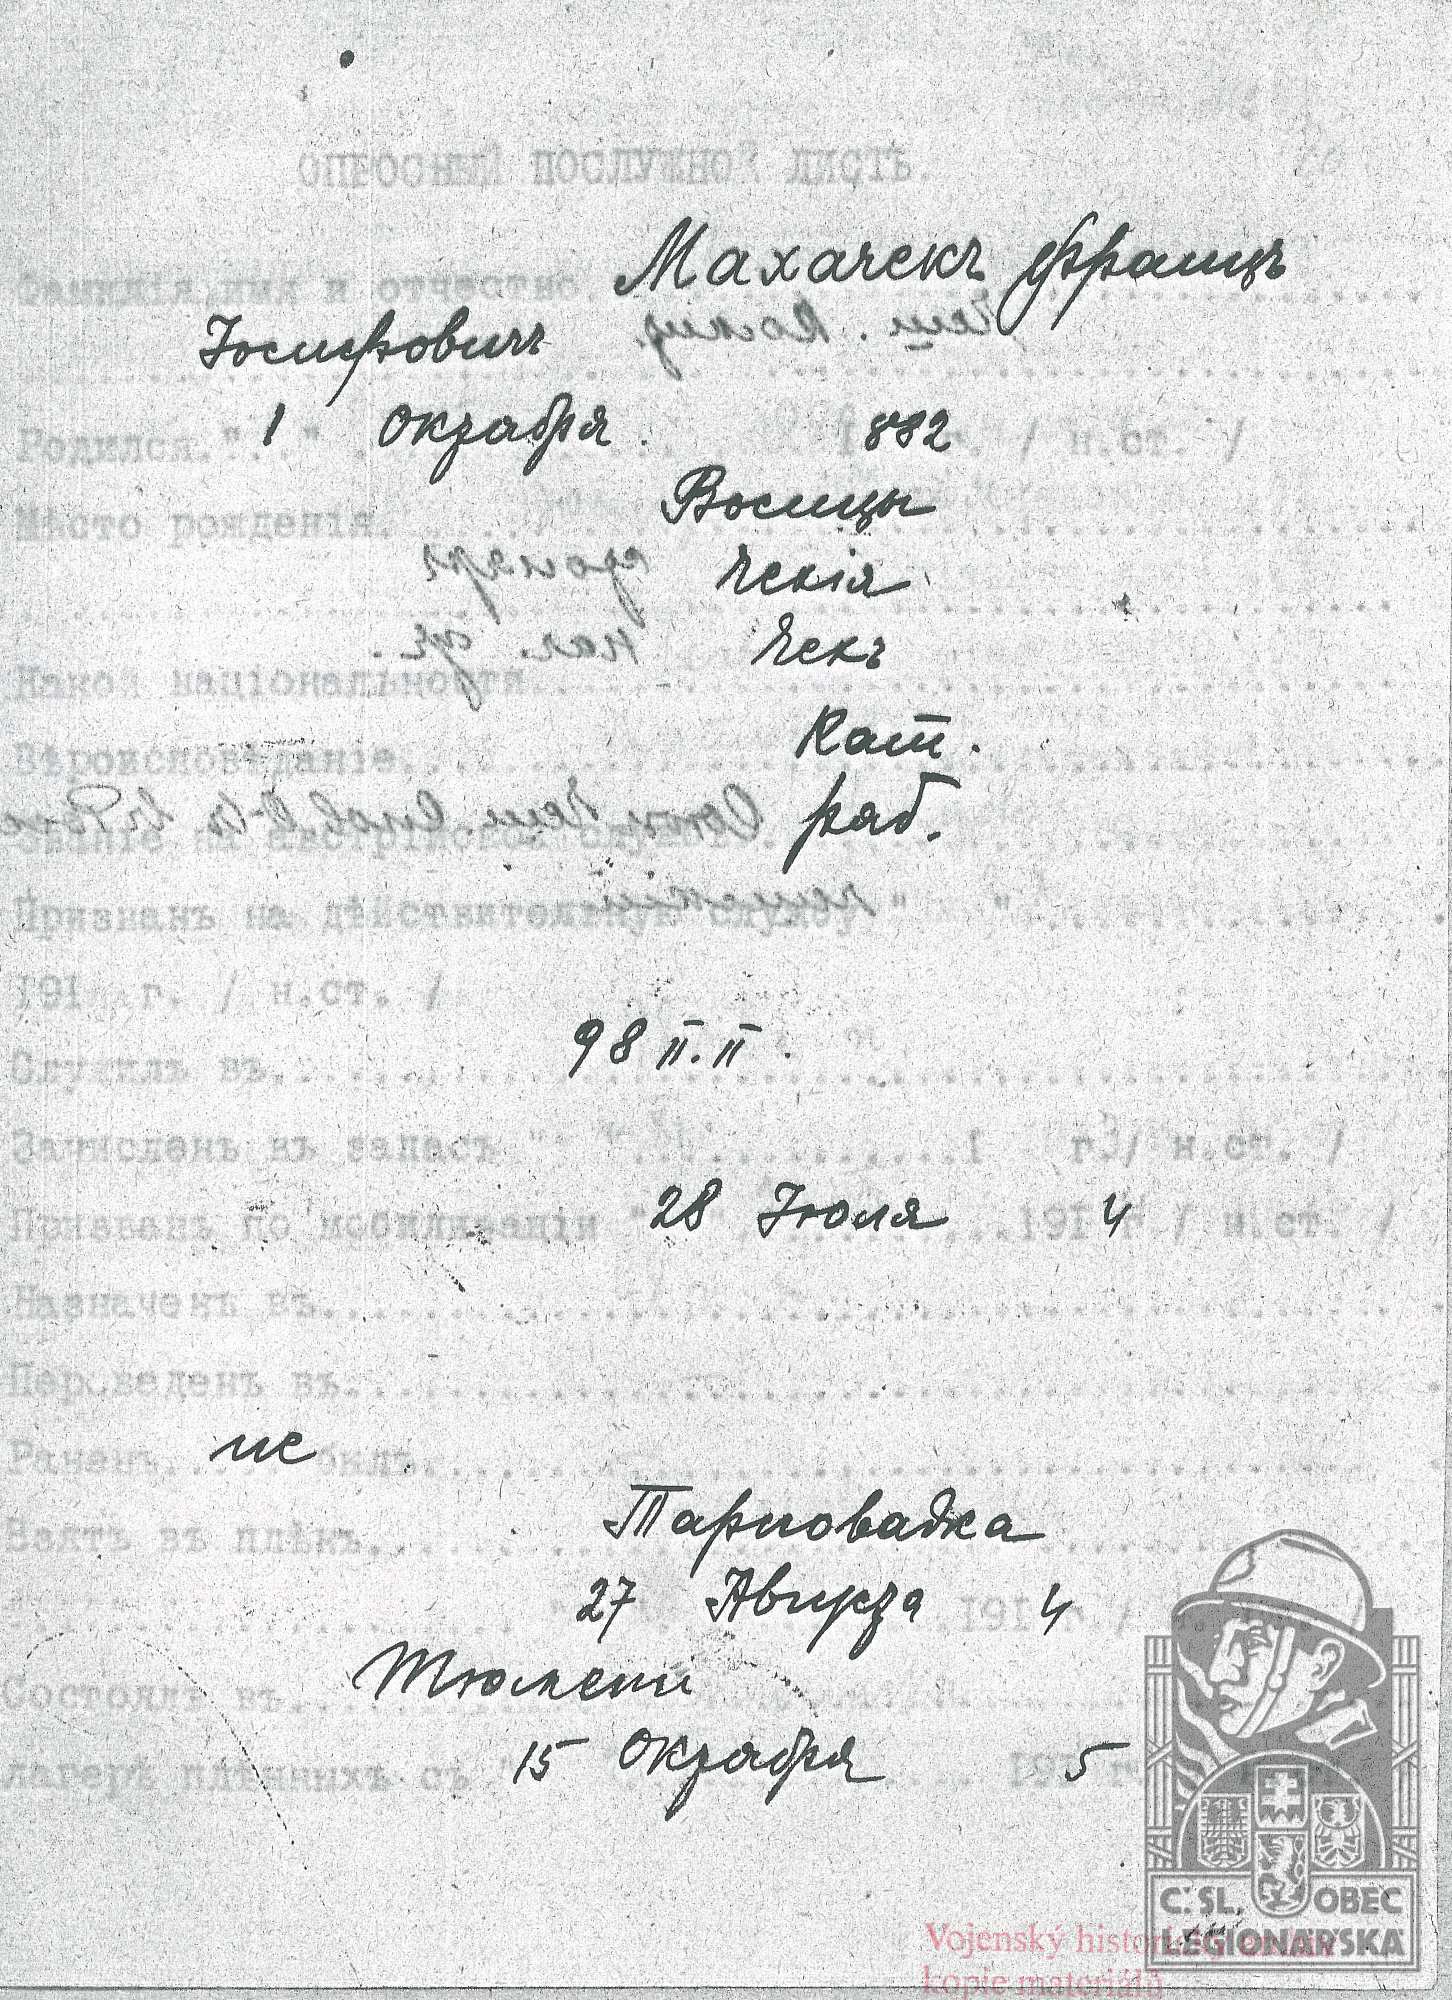 ОПРОСНЫЙ ПОСЛУЖНОЙ ЛИСТЪ.
Фамилія,имя и отчество Махачекъ Францъ
Іосифовичъ
Родился " 1 " Октября 1882 г. / н.ст. /
Мѣсто рожденія Восицы
Чехія
Какой національности Чехъ
Вѣроисповѣданіе Кат.
Званіе на австрійской службѣ ряд.
Призванъ на дѣйствительную службу " "
191 г. / н.ст. /
Служилъ въ 98 п.п.
Зачисленъ въ запасъ " " 1 г. / н.ст. /
Призванъ по мобилизаціи " 28 Іюля 1914 г / н.ст. /
Назначенъ въ
Переведенъ въ
Раненъ не былъ
Взятъ въ плѣнъ Тарновадка
27 Августа 1914 г /
Состоялъ въ Тюмени
лагерѣ плѣнныхъ съ " 15 Октября 1915
C. SL. OBEC
LEGIONÁŘSKÁ
Vojenský historický archiv
kopie materiálů